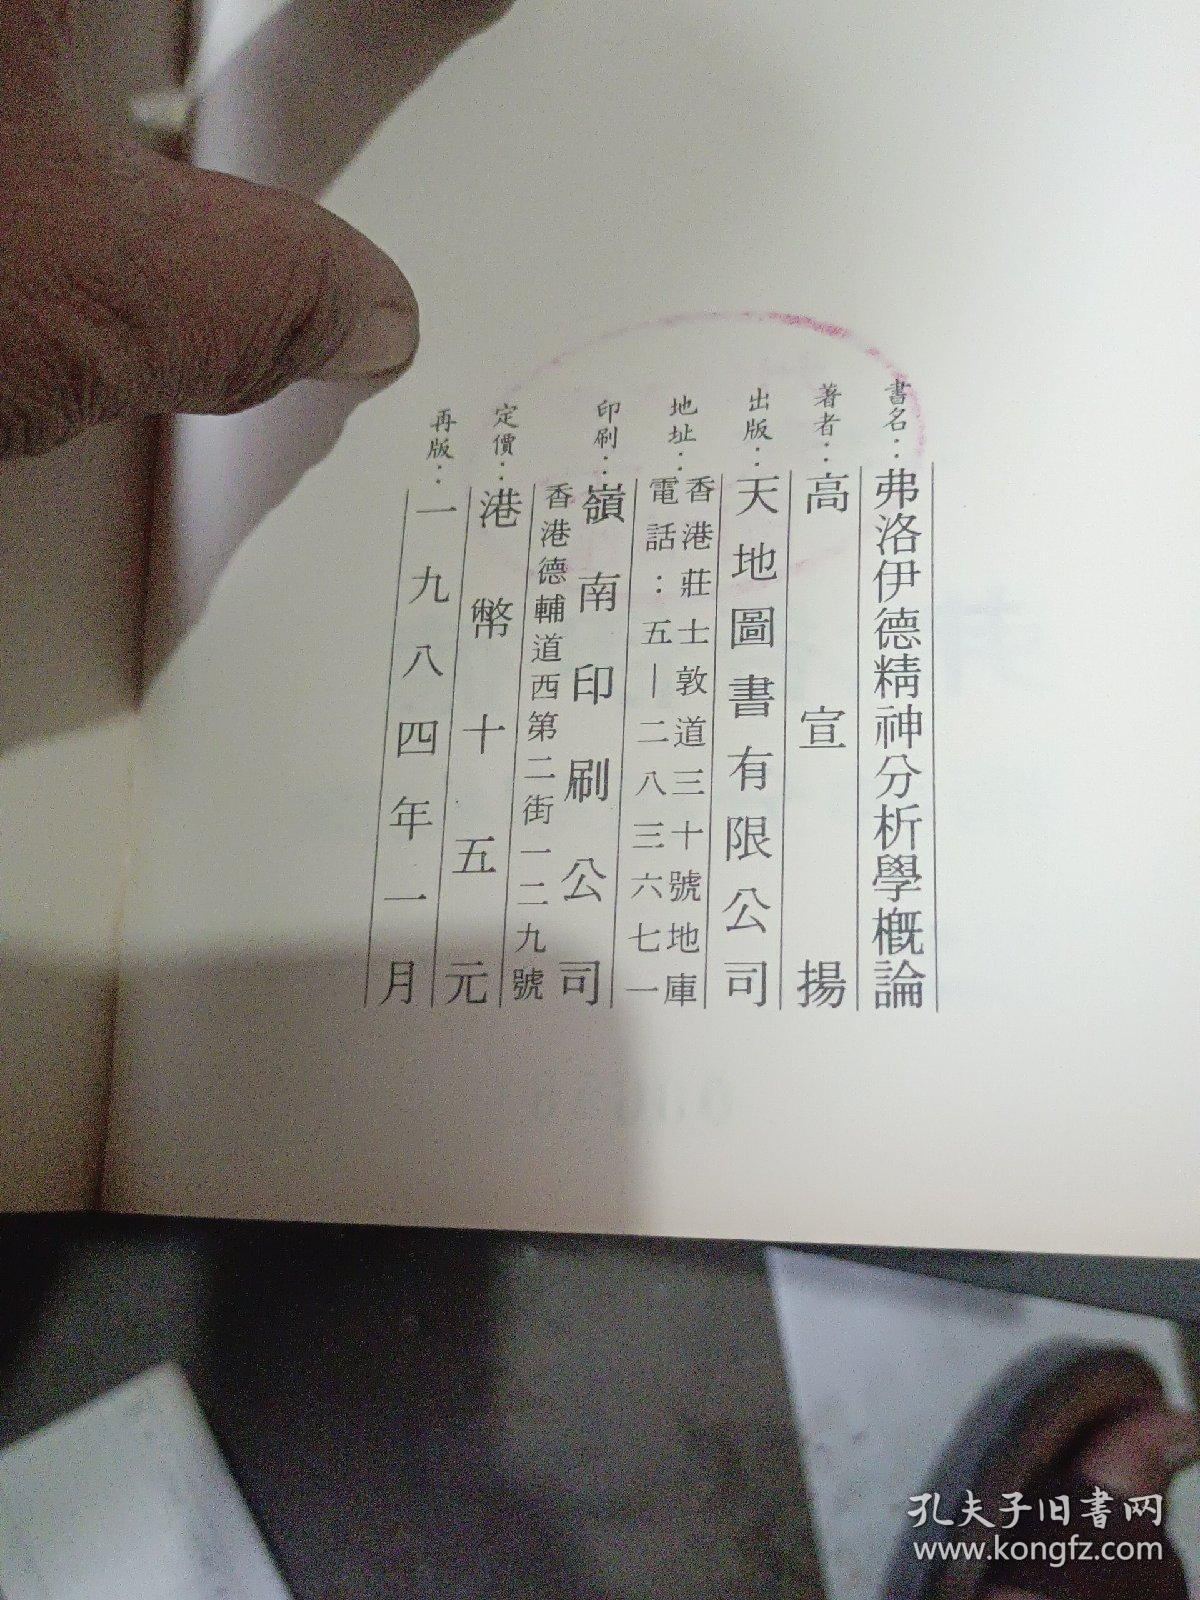 書名：弗洛伊德精神分析學概論
著者：高宣揚
出版：天地圖書有限公司
地址：香港莊士敦道三十號地庫
電話：五—二八三六七一
印刷：嶺南印刷公司
香港德輔道西第二街一二九號
定價：港幣十五元
再版：一九八四年一月
孔夫子旧書网
www.kongfz.com